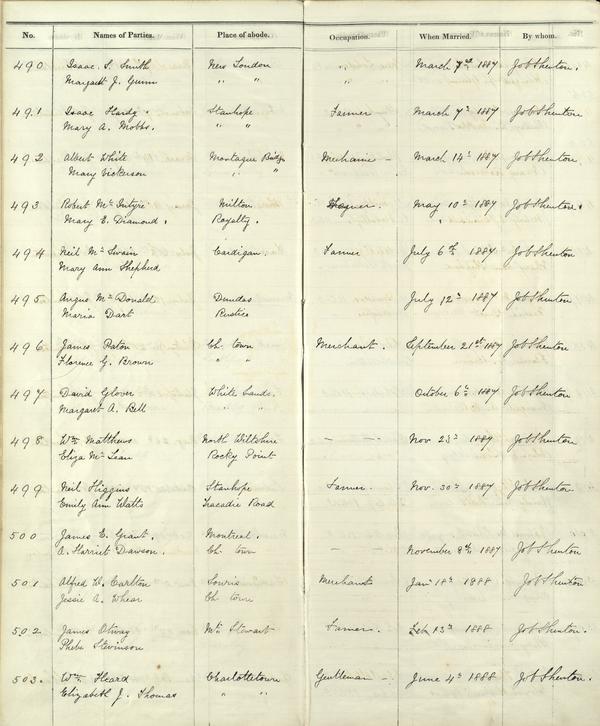 No. Names of Parties. Place of abode. Occupation. When Married. By whom.
490 Isaac S. Smith New London " March 7th 1887 Job Shenton.
Margaret J. Gunn " " "
491 Isaac Hardy. Stanhope Farmer March 7th 1887 Job Shenton
Mary A. Mobbs. " "
492 Albert White Montague Bridge Mechanic - March 14th 1887 Job Shenton
Mary Vickerson " "
493 Robert McIntyre Milton May 10th 1887 Job Shenton.
Mary E. Diamond. Royalty.
494 Neil McSwain Cardigan Farmer July 6th 1887 Job Shenton
Mary Ann Shepherd
495 Angus McDonald Dundas July 12th 1887 Job Shenton
Maria Dart Rustico
496 James Paton Ch. town Merchant. September 21st 1887 Job Shenton
Florence G. Brown " "
497 David Glover White Sands. October 6th 1887 Job Shenton
Margaret A. Bell " "
498 Wm Matthews North Wiltshire - - Nov 23rd 1887 Job Shenton
Eliza McLean Rocky Point
499 Neil Higgins Stanhope Farmer. Nov. 30th 1887 Job Shenton.
Emily Ann Watts Tracadie Road
500 James E. Grant. Montreal.
A. Harriet Dawson. Ch. town - November 8th 1887 Job Shenton
501 Alfred W. Carlton Souris Merchant Jany 18th 1888 Job Shenton
Jessie A. Whear Ch. town
502 James Otway Mt. Stewart Farmer. Feb 13th 1888 Job Shenton.
Phebe Stevinson
503. Wm Heard Charlottetown Gentleman - June 4th 1888 Job Shenton.
Elizabeth J. Thomas " "